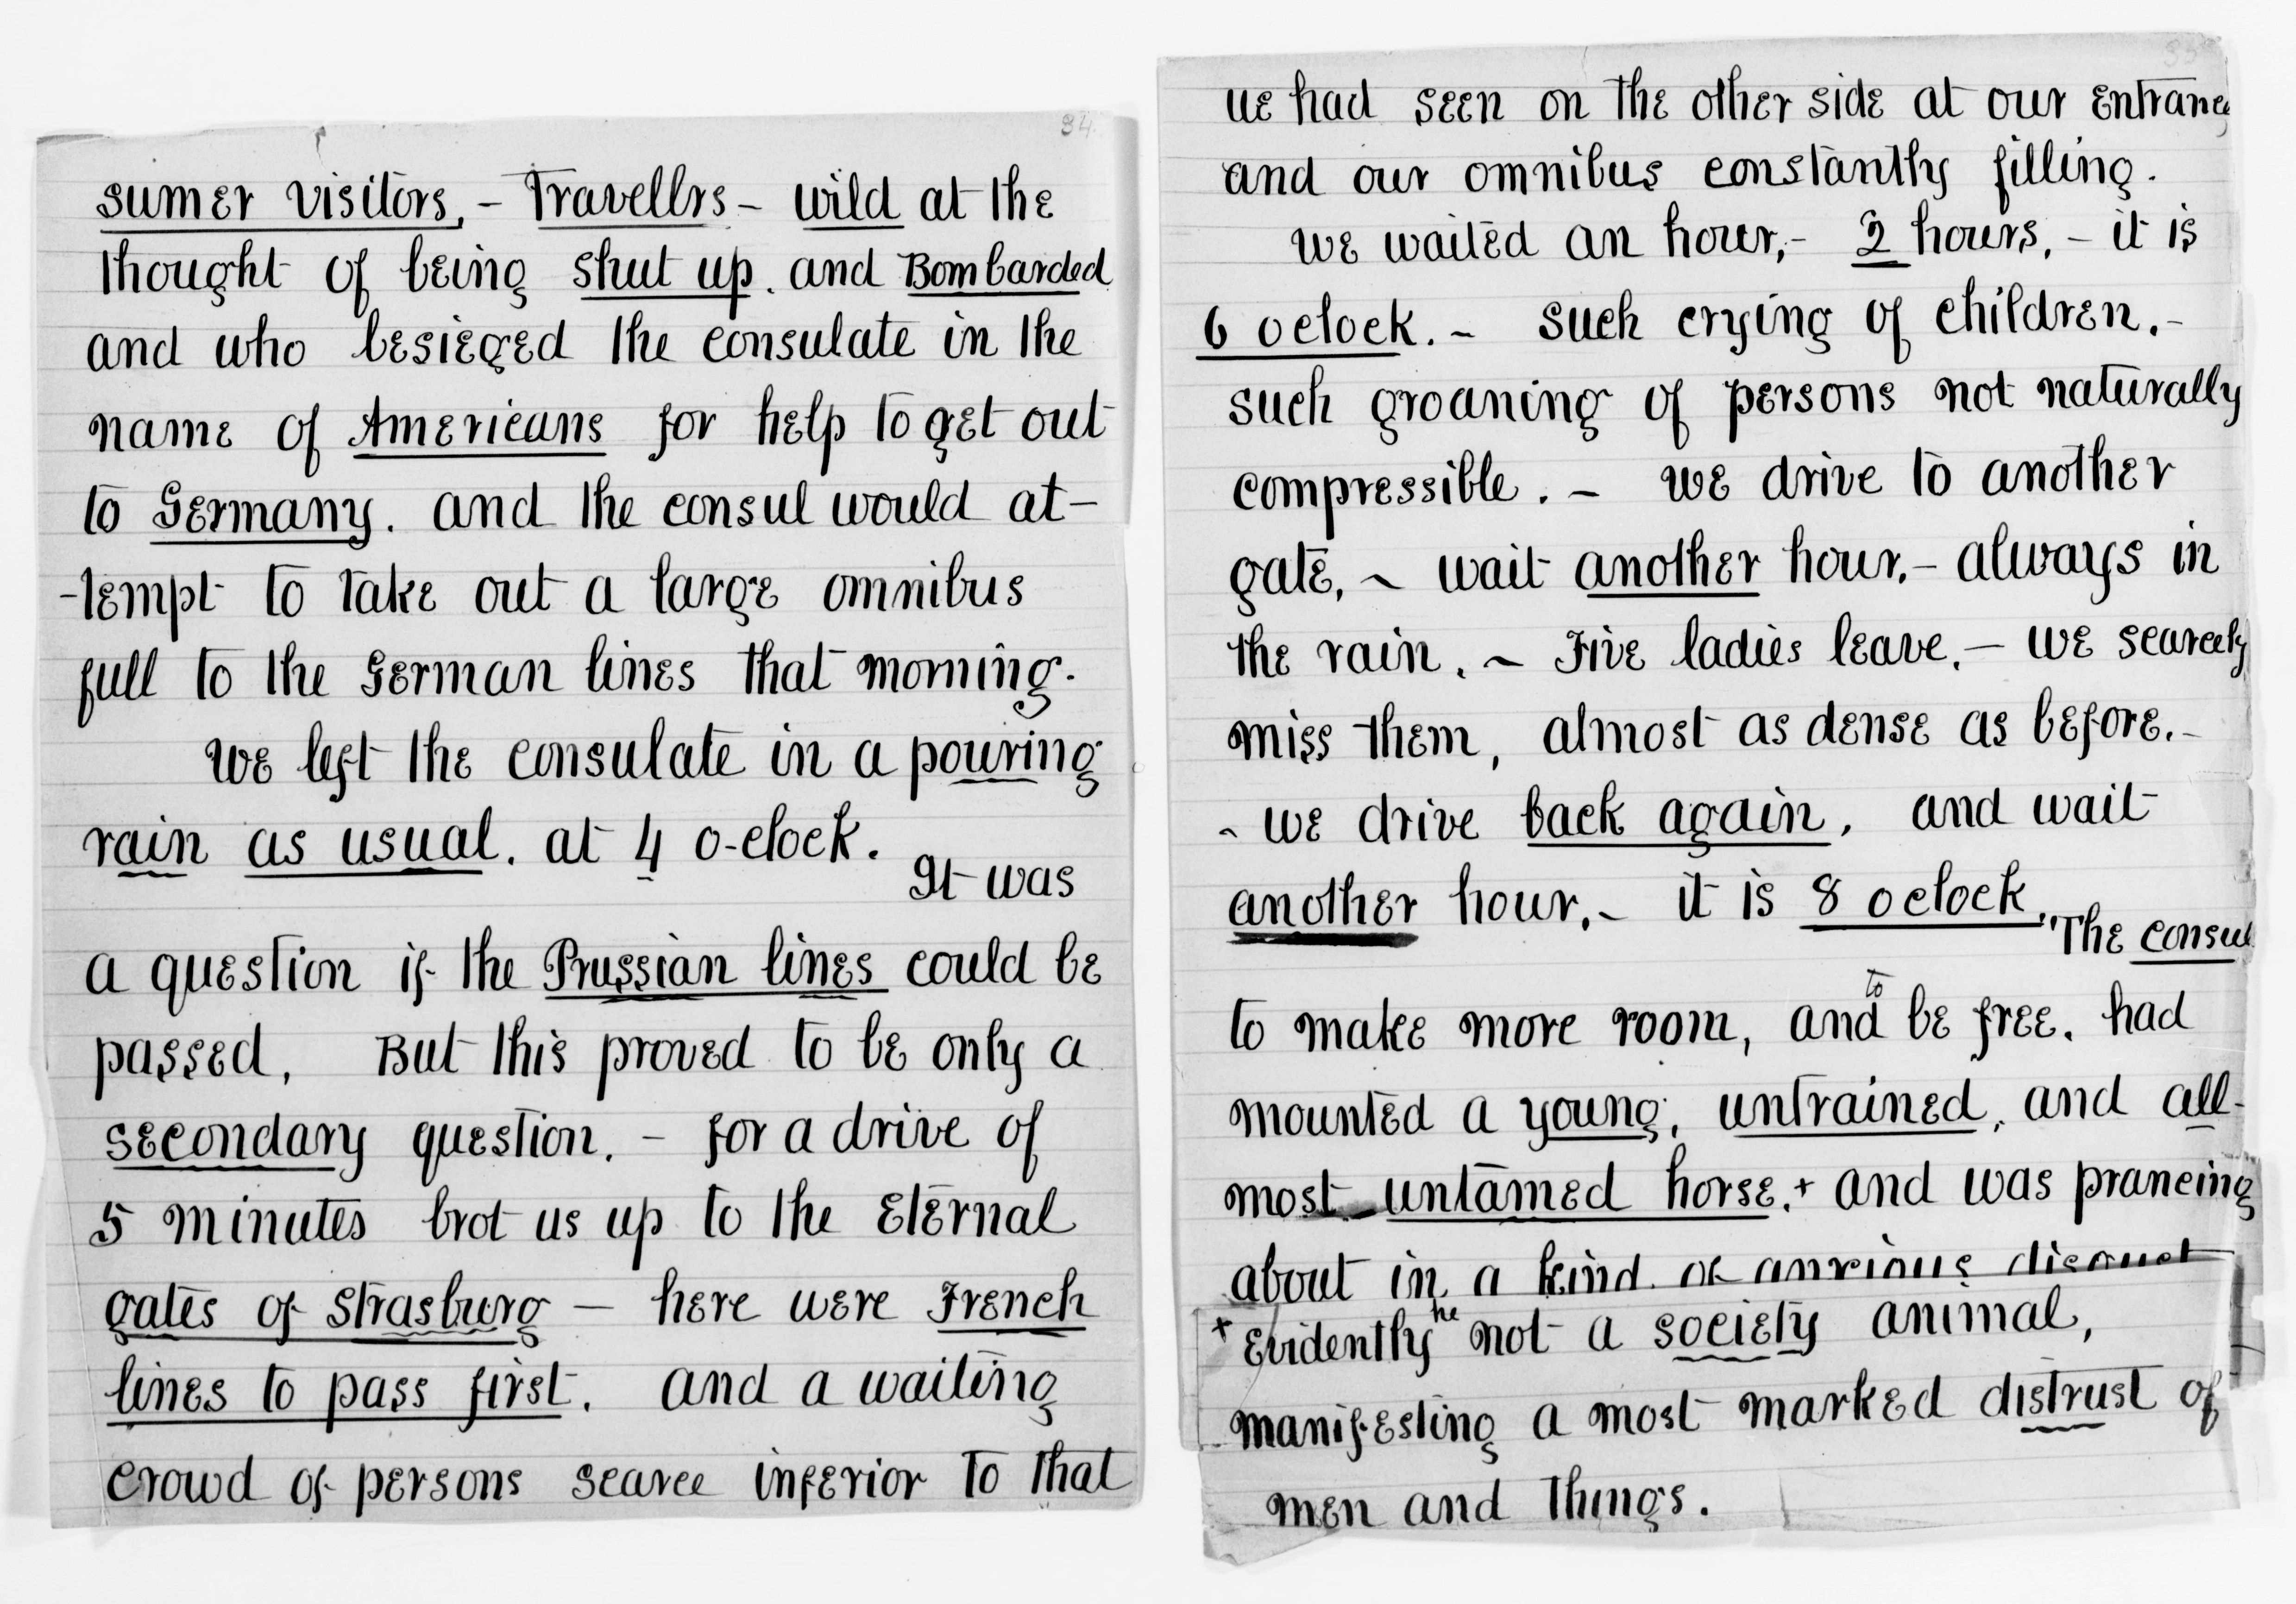 84.
sumer visitors, - Travellrs - wild at the
thought of being shut up. and Bombarded
and who besieged the consulate in the
name of Americans for help to get out
to Germany. and the consul would at-
-tempt to take out a large omnibus
full to the German lines that morning.
we left the consulate in a pouring
rain as usual. at 4 o-clock.
It was
a question if the Prussian lines could be
passed, But this proved to be only a
secondary question. - for a drive of
5 minutes brot us up to the Eternal
gates of Strasburg - here were French
lines to pass first. and a waiting
crowd of persons scarce inferior to that
we had seen on the other side at our entrance
and our omnibus constantly filling.
we waited an hour, - 2 hours, - it is
6 oclock. - such crying of children. -
such groaning of persons not naturally
compressible. - we drive to another
gate, - wait another hour. - always in
the rain. - Five ladies leave. - we scarcely
miss them, almost as dense as before. -
- we drive back again, and wait
another hour. - it is 8 oclock.
The consul
to make more room, and to be free. had
mounted a young, untrained, and all-
most untamed horse. + and was prancing
about in a kind of anxious disgust
+ Evidently he not a society animal,
manifesting a most marked distrust of
men and things.